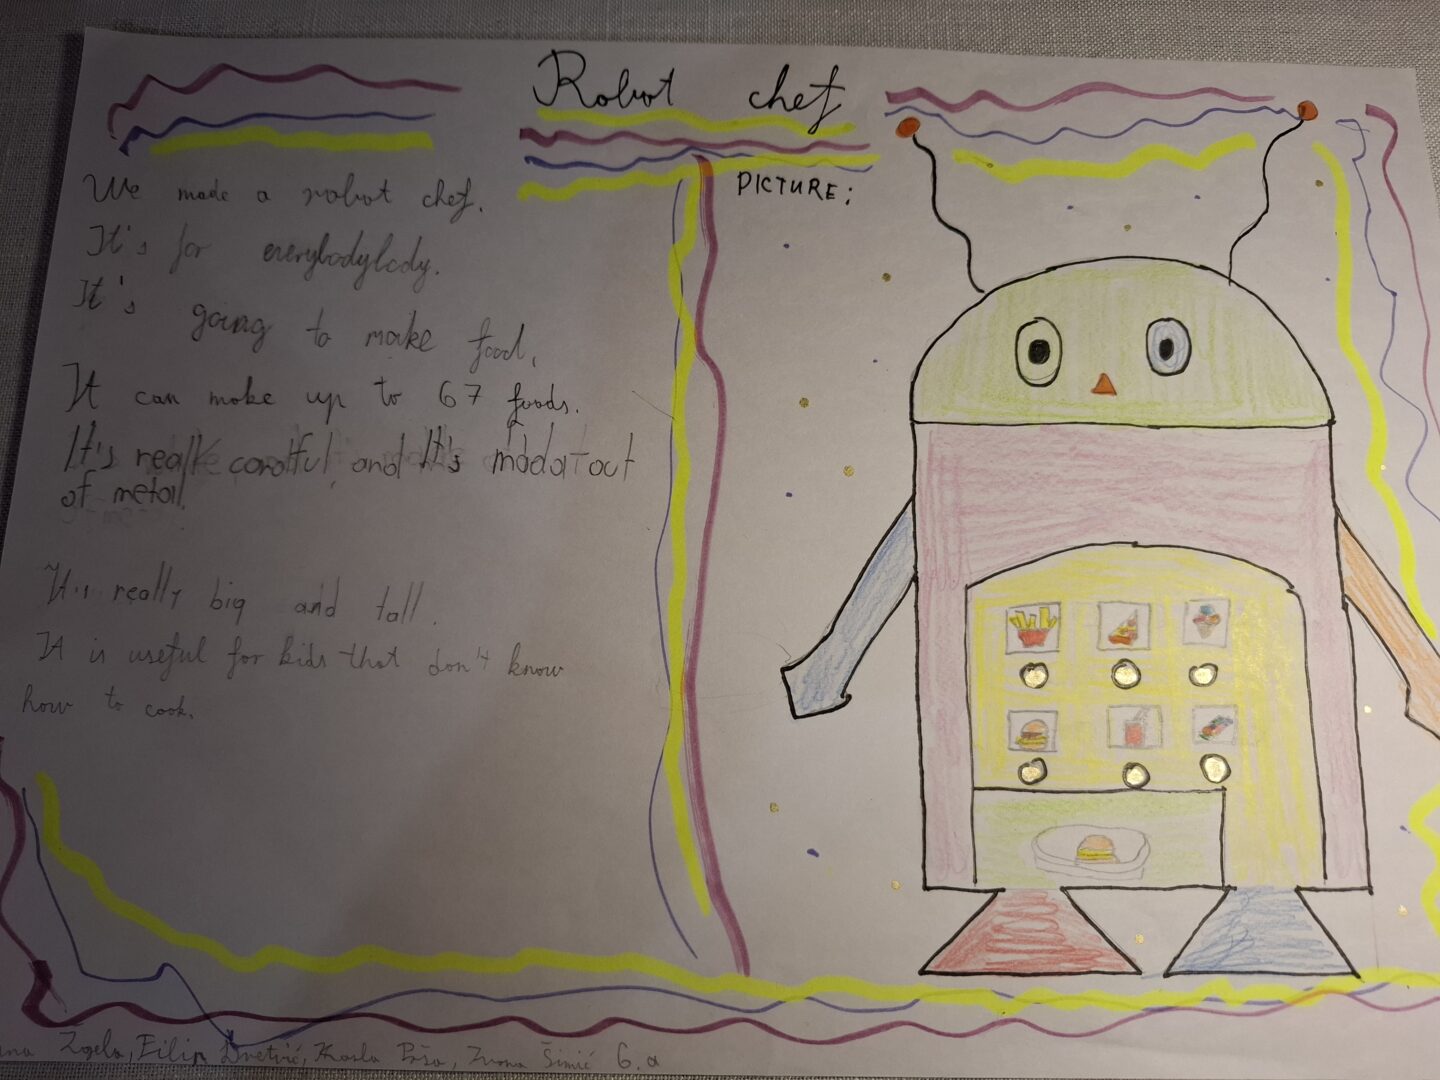 Robot chef
We made a robot chef.
It's for everybodybody.
It's going to make food.
It can make up to 67 foods.
It's really and It's out
of metal.
It's really big and tall.
It is useful for kids that don't know
how to cook.
PICTURE:
Filip Karla Ivona Šimić 6.a